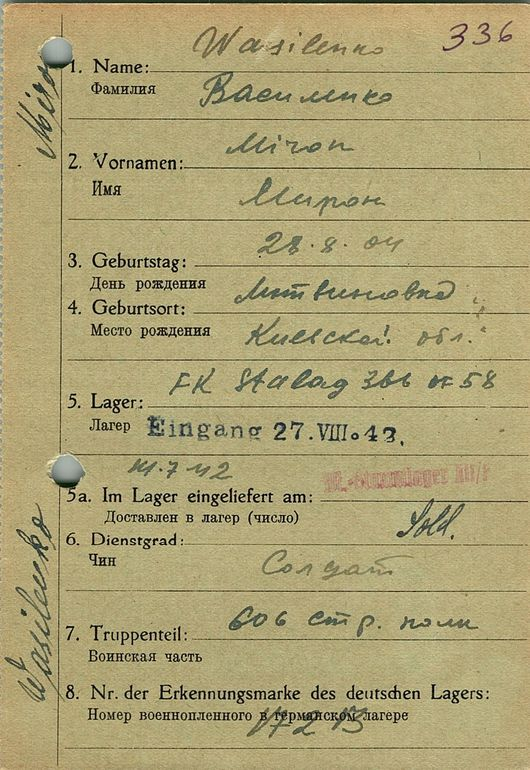 336
Wasilenko
1. Name:
Фамилия
Василенко
Miron
2. Vornamen:
Имя
Мирон
28.8.04
3. Geburtstag:
День рождения
Литвиновка
4. Geburtsort:
Место рождения
Киевской обл.
FK Stalag 366
5. Lager:
Лагер
Eingang 27. VIII. 43.
5a. Im Lager eingeliefert am:
Доставлен в лагер (число)
Sold.
6. Dienstgrad:
Чин
Солдат
606 стр. полк
7. Truppenteil:
Воинская часть
8. Nr. der Erkennungsmarke des deutschen Lagers:
Номер военнопленного в германском лагере
Wasilenko
Miron